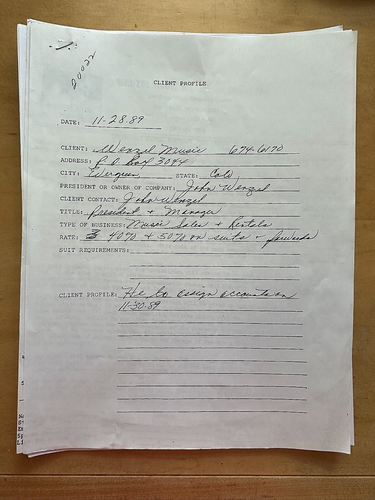 20022
CLIENT PROFILE
DATE: 11-28-89
CLIENT: Wenzel Music 674-6170
ADDRESS: P O Box 3044
CITY: Evergreen STATE: Colo
PRESIDENT OR OWNER OF COMPANY: John Wenzel
CLIENT CONTACT: John Wenzel
TITLE: President + Manager
TYPE OF BUSINESS: Music Sales + Rentals
RATE: 40% + 50% on suits + forwards
SUIT REQUIREMENTS:
CLIENT PROFILE: He to assign accounts on
11-30-89